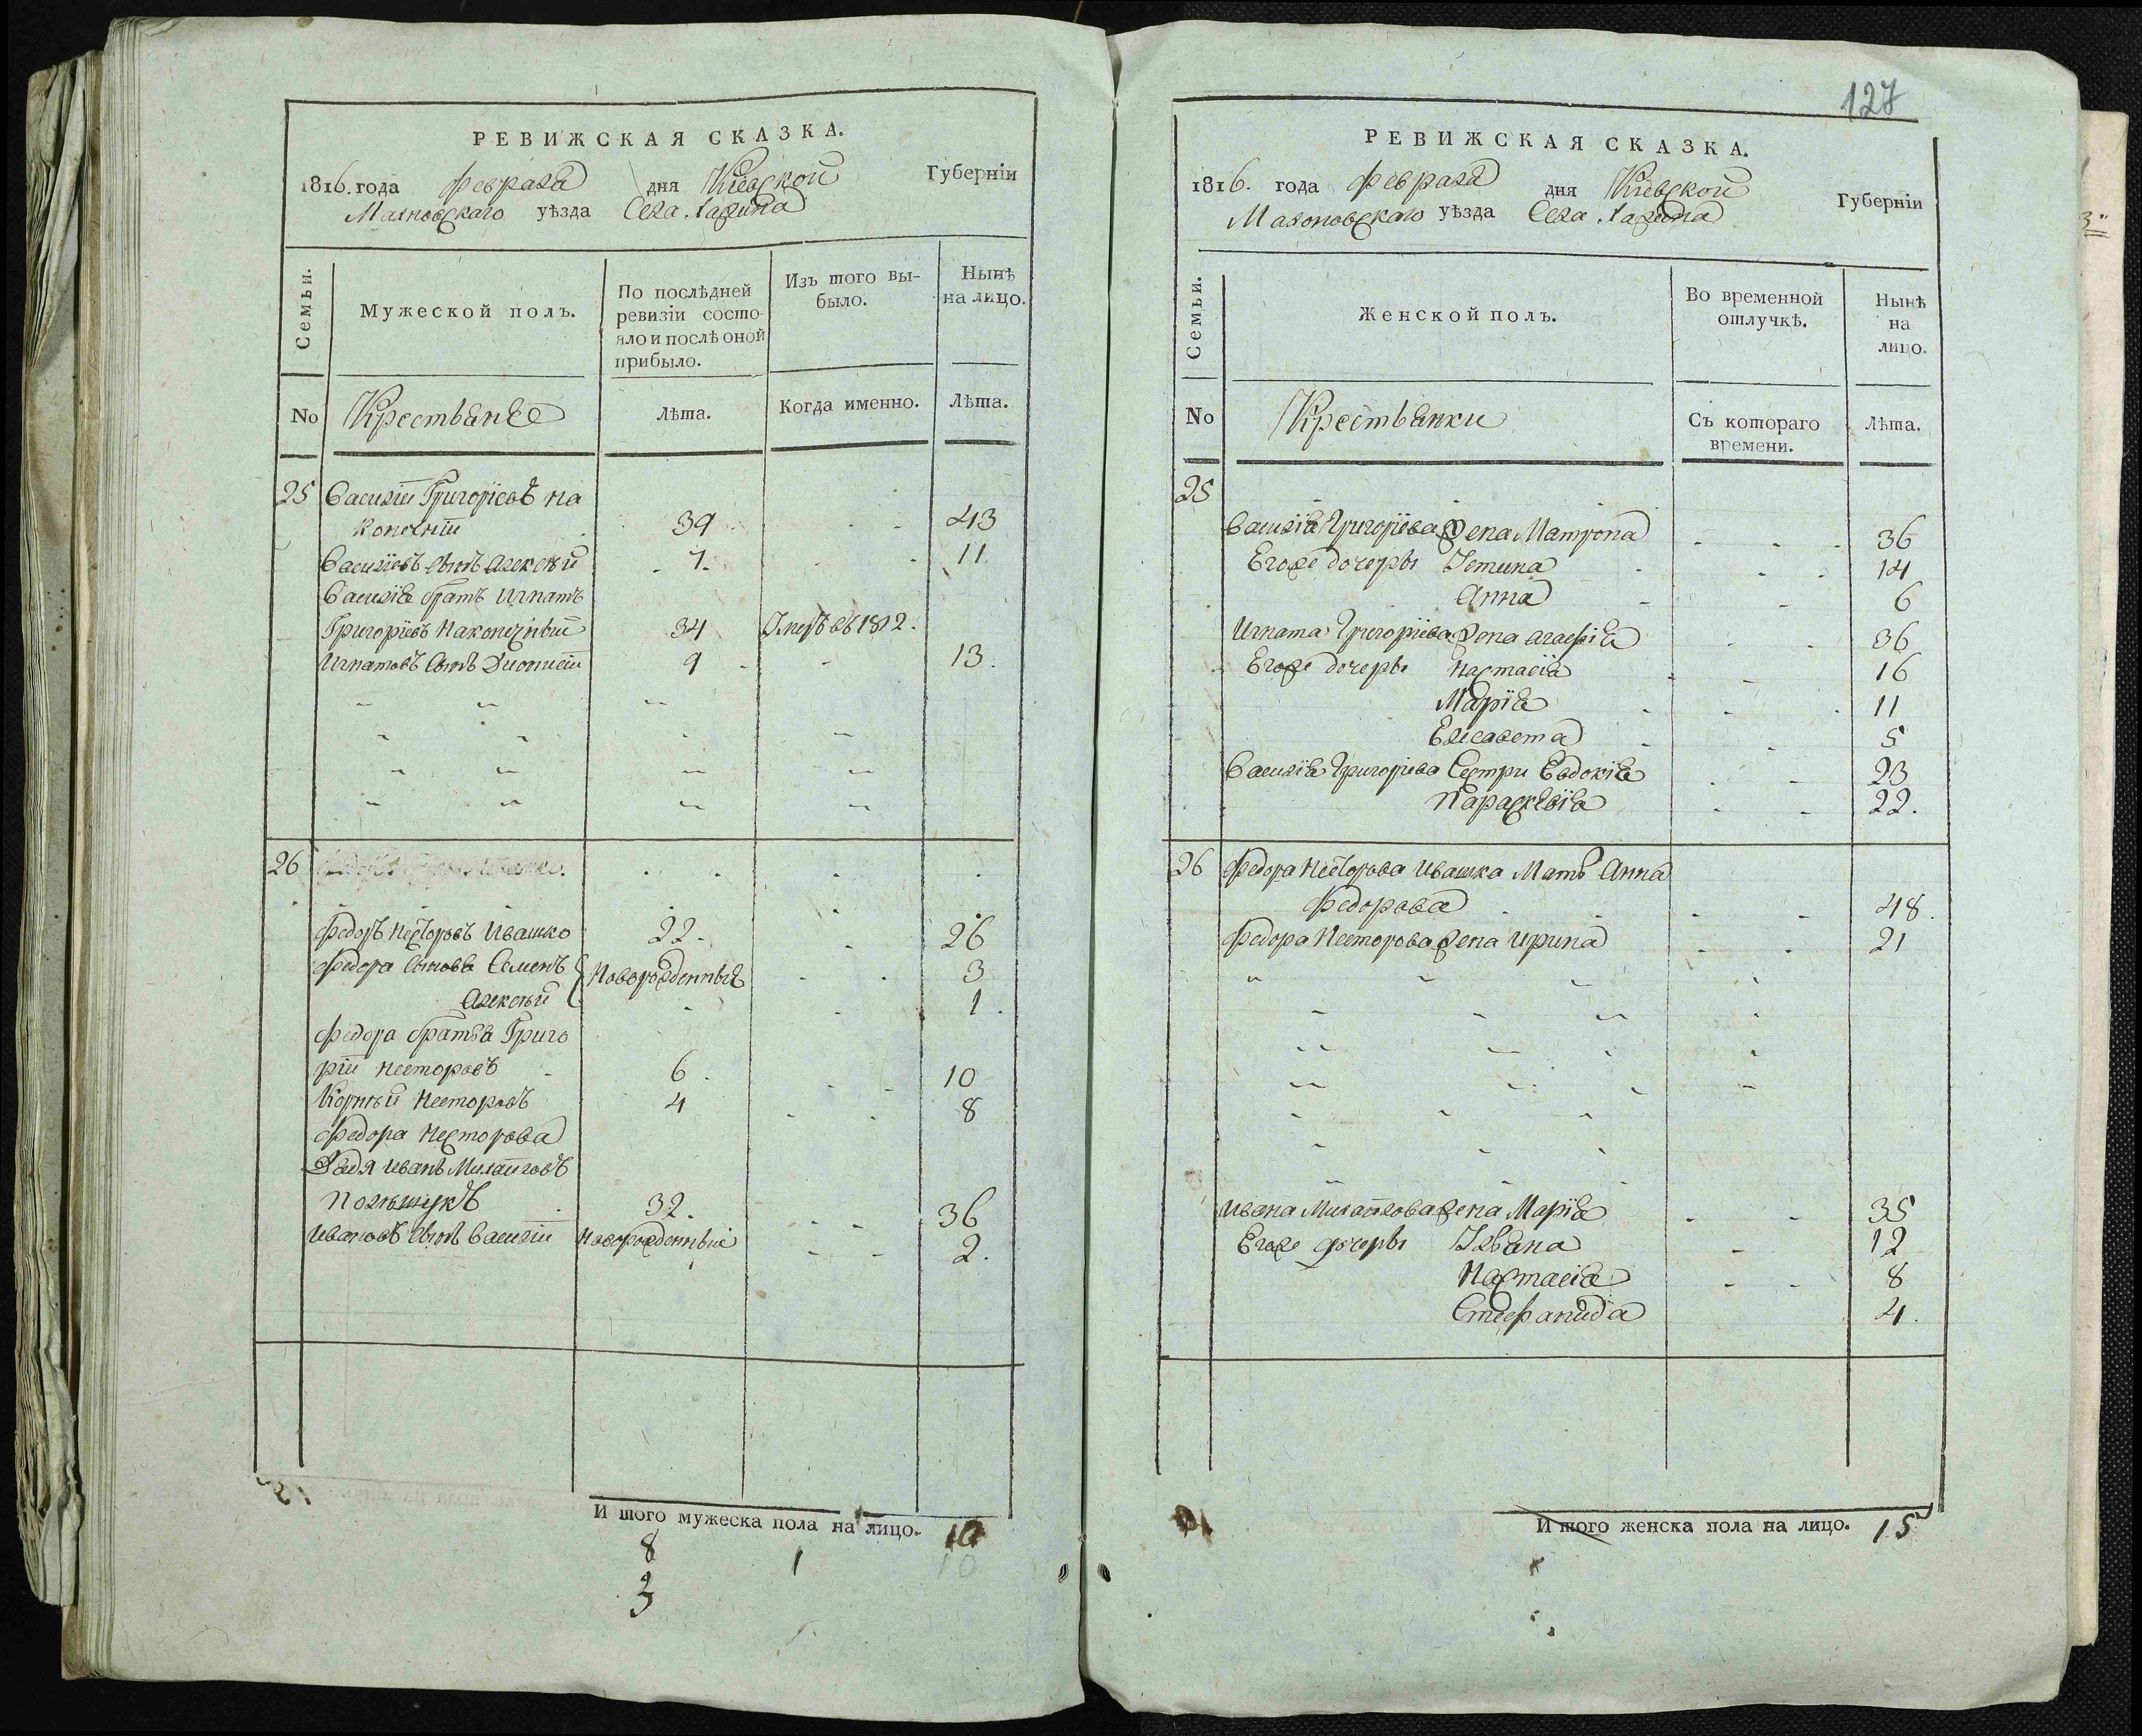 РЕВИЖСКАЯ СКАЗКА.
1816. года Февраля дня Кіевской Губерніи
Махновскаго уѣзда Села
Семьи.
Мужеской полъ.
По послѣдней
ревизіи состо-
яло и послѣ оной
прибыло.
Изъ того вы-
было.
Нынѣ
на лицо.
No
Крестьяне
Лѣта.
Когда именно.
Лѣта.
25 Василій Григорьевъ На
конечній 39 43
Васильевъ сынъ Алексѣй 7 11
Василія братъ Игнатъ
Григорьевъ Наконечный 34 Умеръ въ 1812.
Игнатовъ сынъ Дионисій 9 13.
26
Федоръ Несторовъ Ивашко 22. 26
Федора сыновья Семенъ Новорожденные 3
Алексѣй 1.
Федора братья Григо
рій Несторовъ 6. 10
Корнѣй Несторовъ 4 8
Федора Несторова
дядя Иванъ
Полѣщукъ 32. 36
Ивановъ сынъ Василій Новорожденный 2.
И того мужеска пола на лицо. 10
8 1 10
3
127
РЕВИЖСКАЯ СКАЗКА.
1816. года Февраля дня Кіевской Губерніи
Махновскаго уѣзда Села
Семьи.
Женской полъ.
Во временной
отлучкѣ.
Нынѣ
на
лицо.
No
Крестьянки
Съ котораго
времени.
Лѣта.
25
Василія Григорьева жена Матрона 36
Егоже дочеры Устина 14
Анна 6
Игната Григорьева жена Агафія 36
Егоже дочеры Настасія 16
Марія 11
Елисавета 5
Василія Григорьева сестри Евдокія 23
Параскѣвія 22.
26 Федора Несторова Ивашка мать Анна
Федорова 48.
Федора Несторова жена Ирина 21
Ивана жена Марія 35
Егоже дочеры Ульяна 12
Настасія 8
Стефанида 4.
И того женска пола на лицо. 15